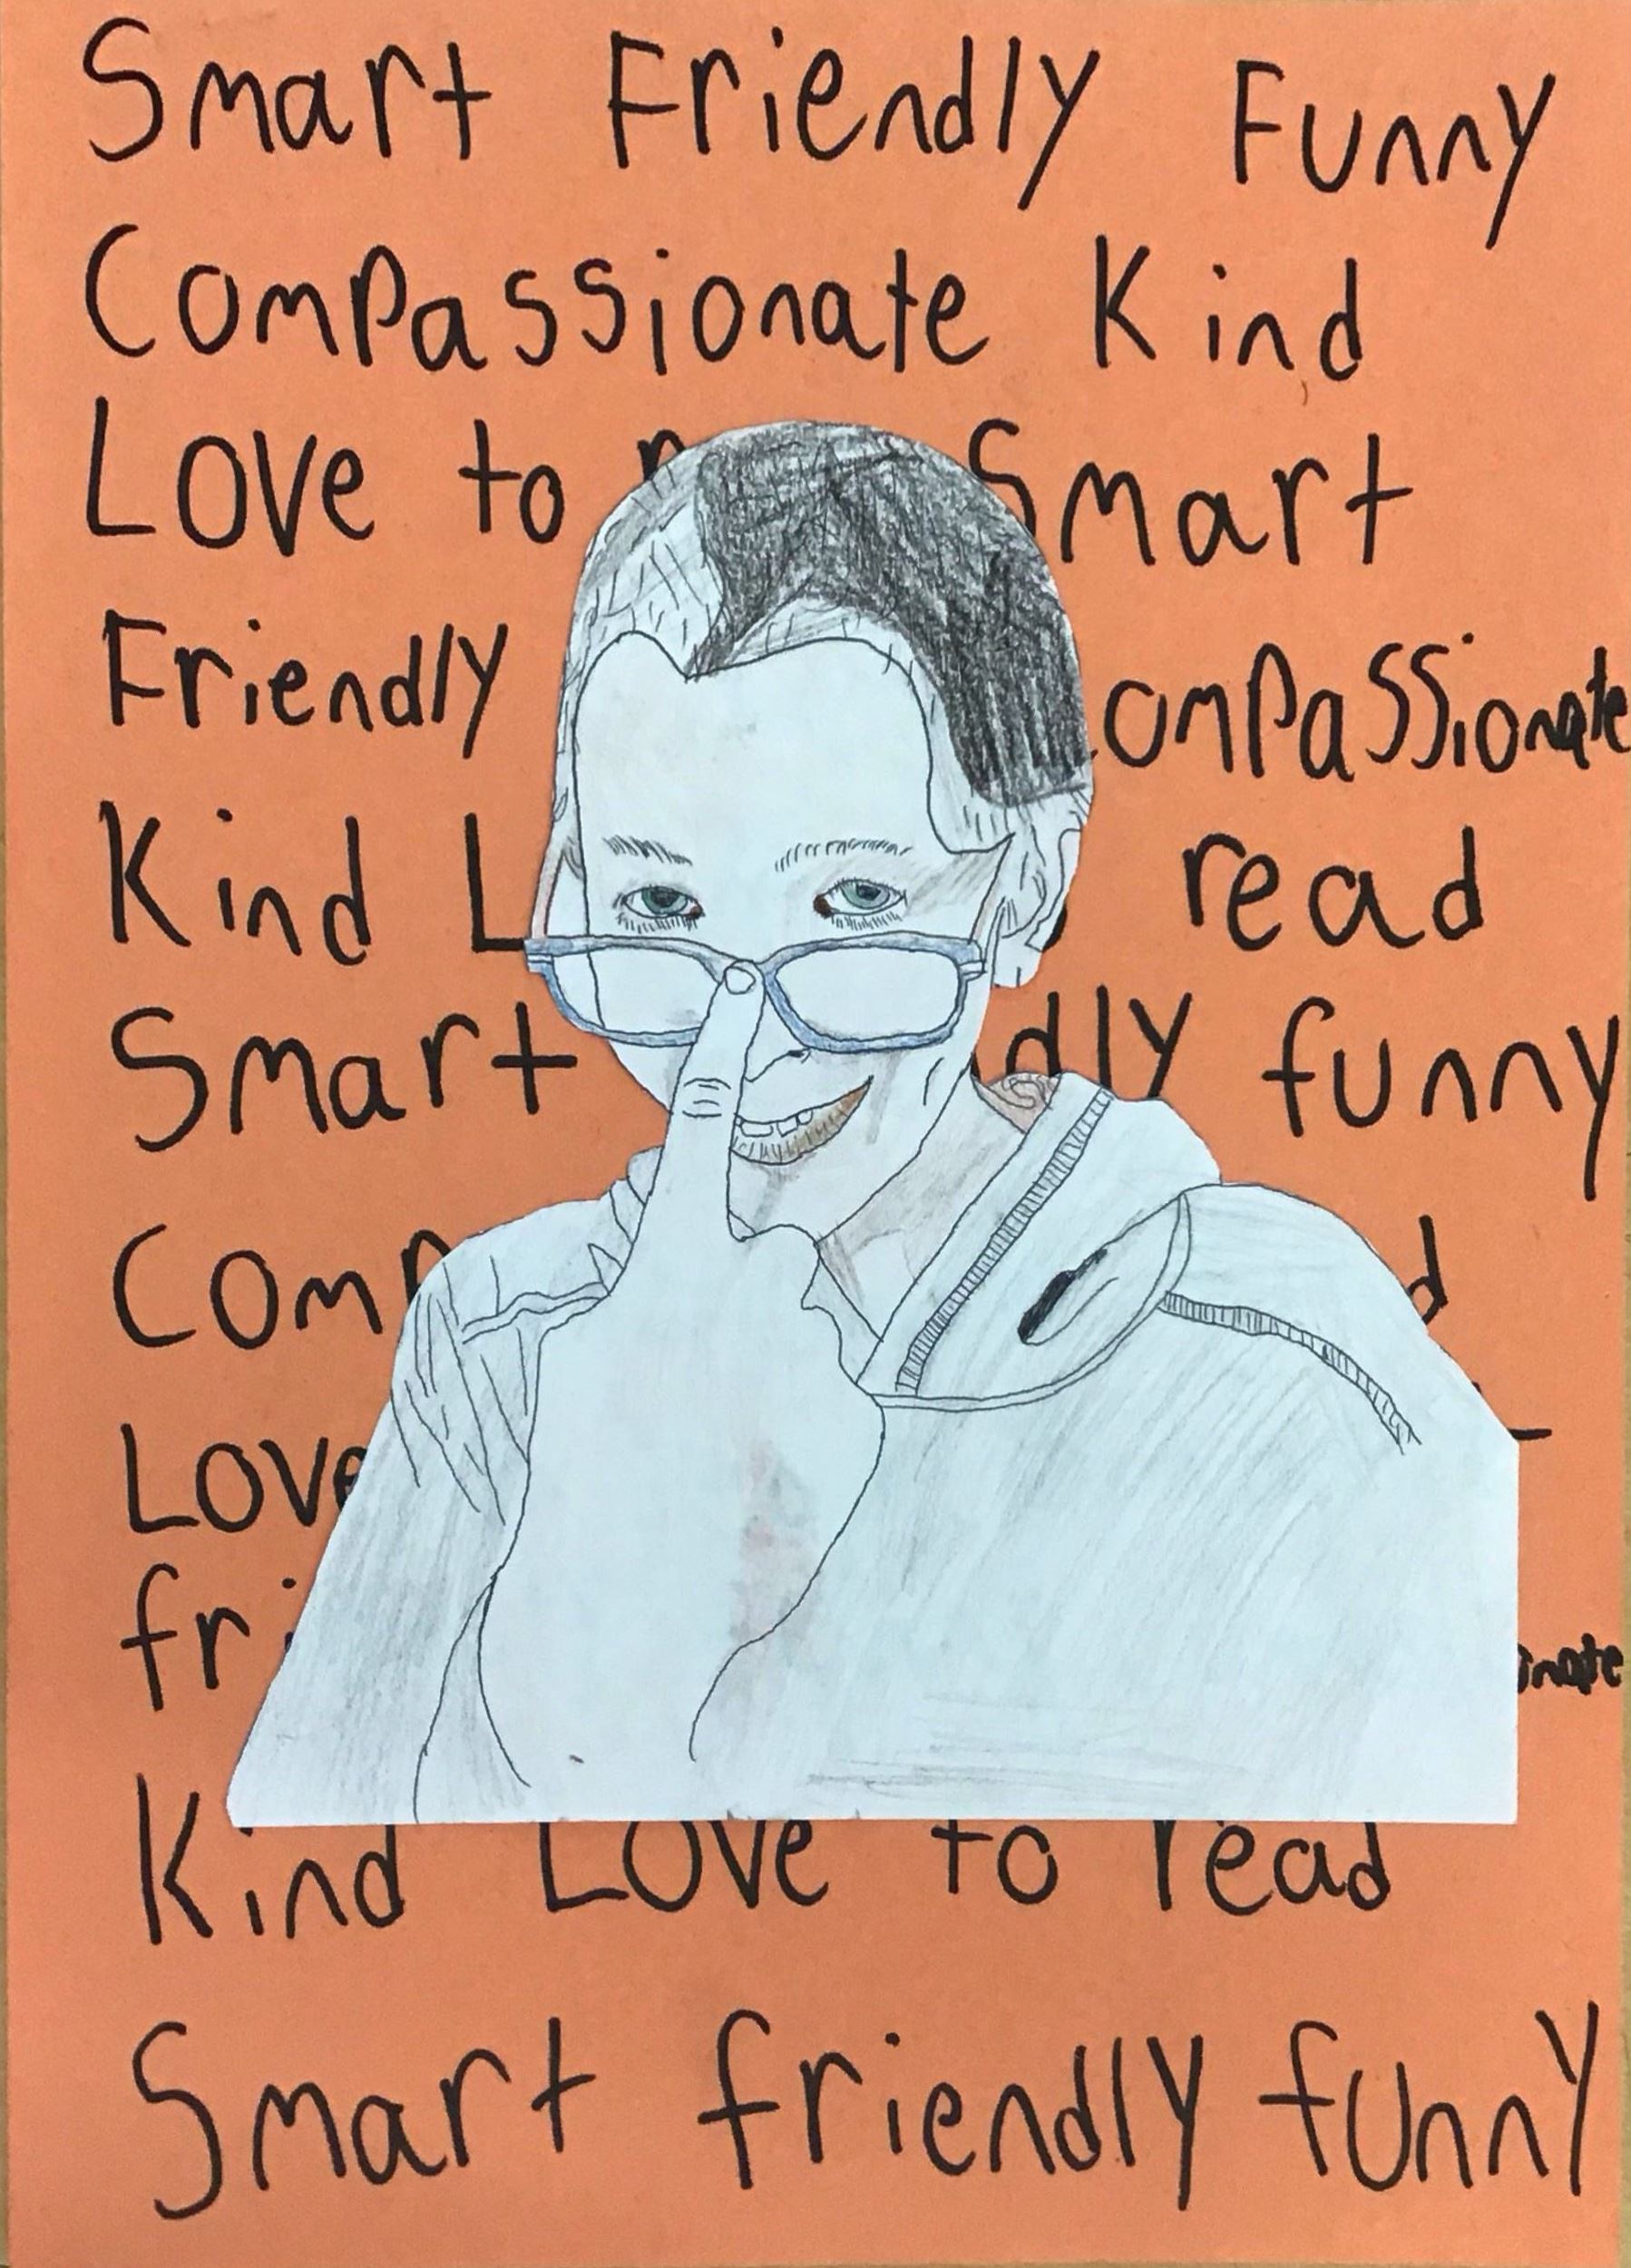 Smart Friendly Funny
Compassionate Kind
Love to Smart
Friendly compassionate
Kind L read
Smart dly funny
Comp d
Love
fri inate
Kind Love to read
Smart friendly funny